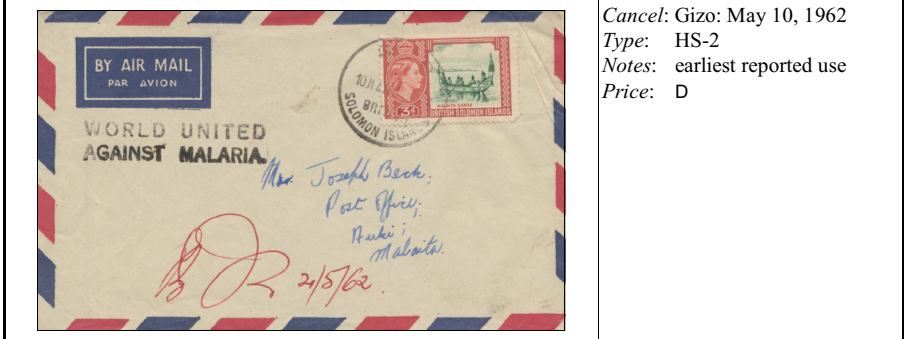 BY AIR MAIL
PAR AVION
WORLD UNITED
AGAINST MALARIA.
SOLOMON ISLANDS
3d
MALAITA CANOE
BRITISH SOLOMON ISLANDS
Mr. Joseph Beck,
Post Office,
Auki,
Malaita.
21/5/62.
Cancel: Gizo: May 10, 1962
Type: HS-2
Notes: earliest reported use
Price: D